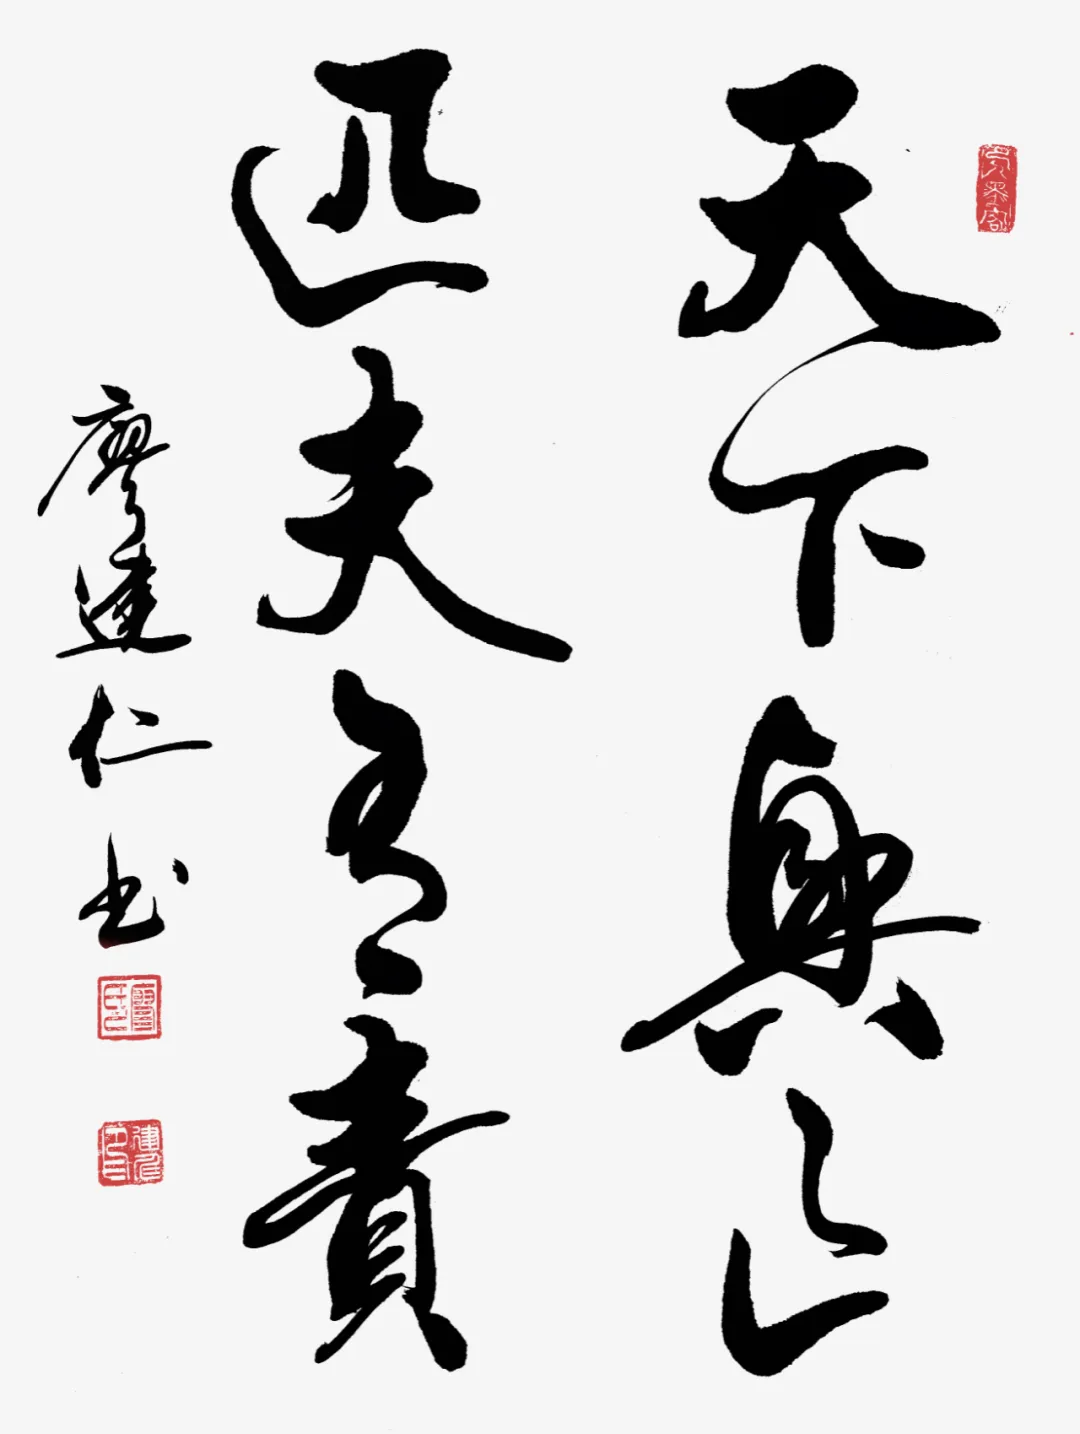 天下興亡
匹夫有責
廖建仁书